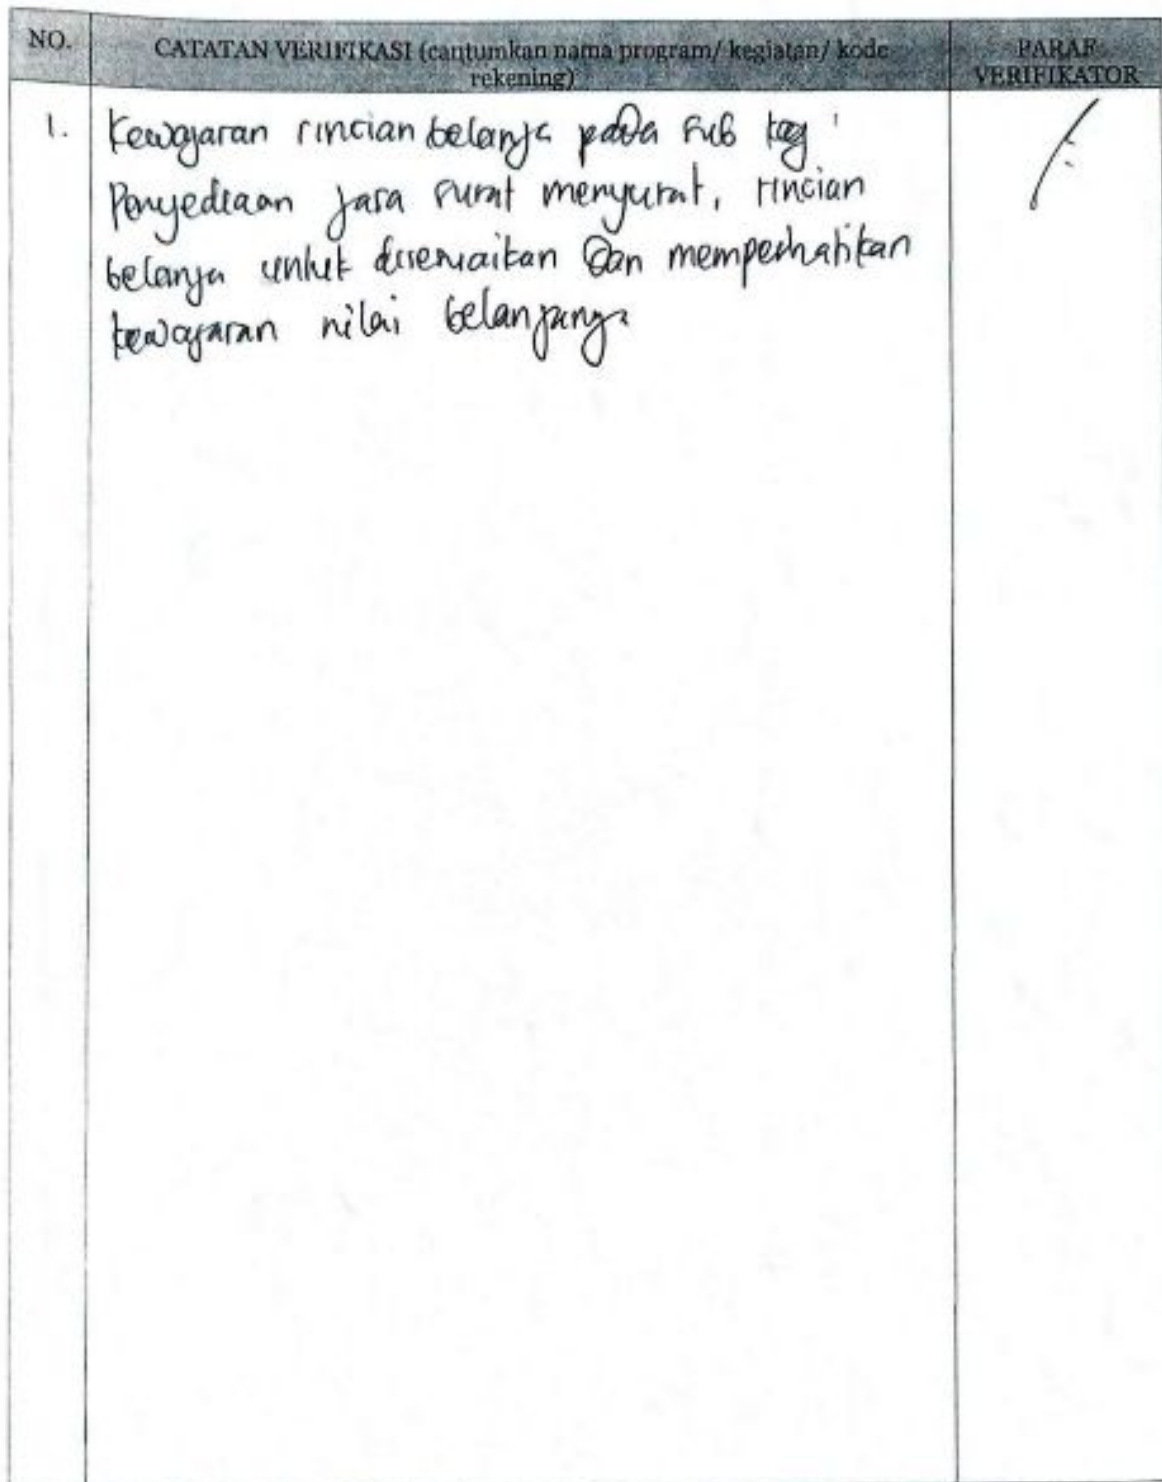 NO.
CATATAN VERIFIKASI (cantumkan nama program/ kegiatan/ kode
rekening)
PARAF
VERIFIKATOR
1.
Kewajaran rincian belanja pada sub keg
Penyediaan jasa surat menyurat, rincian
belanja untuk disesuaikan dan memperhatikan
kewajaran nilai belanjanya